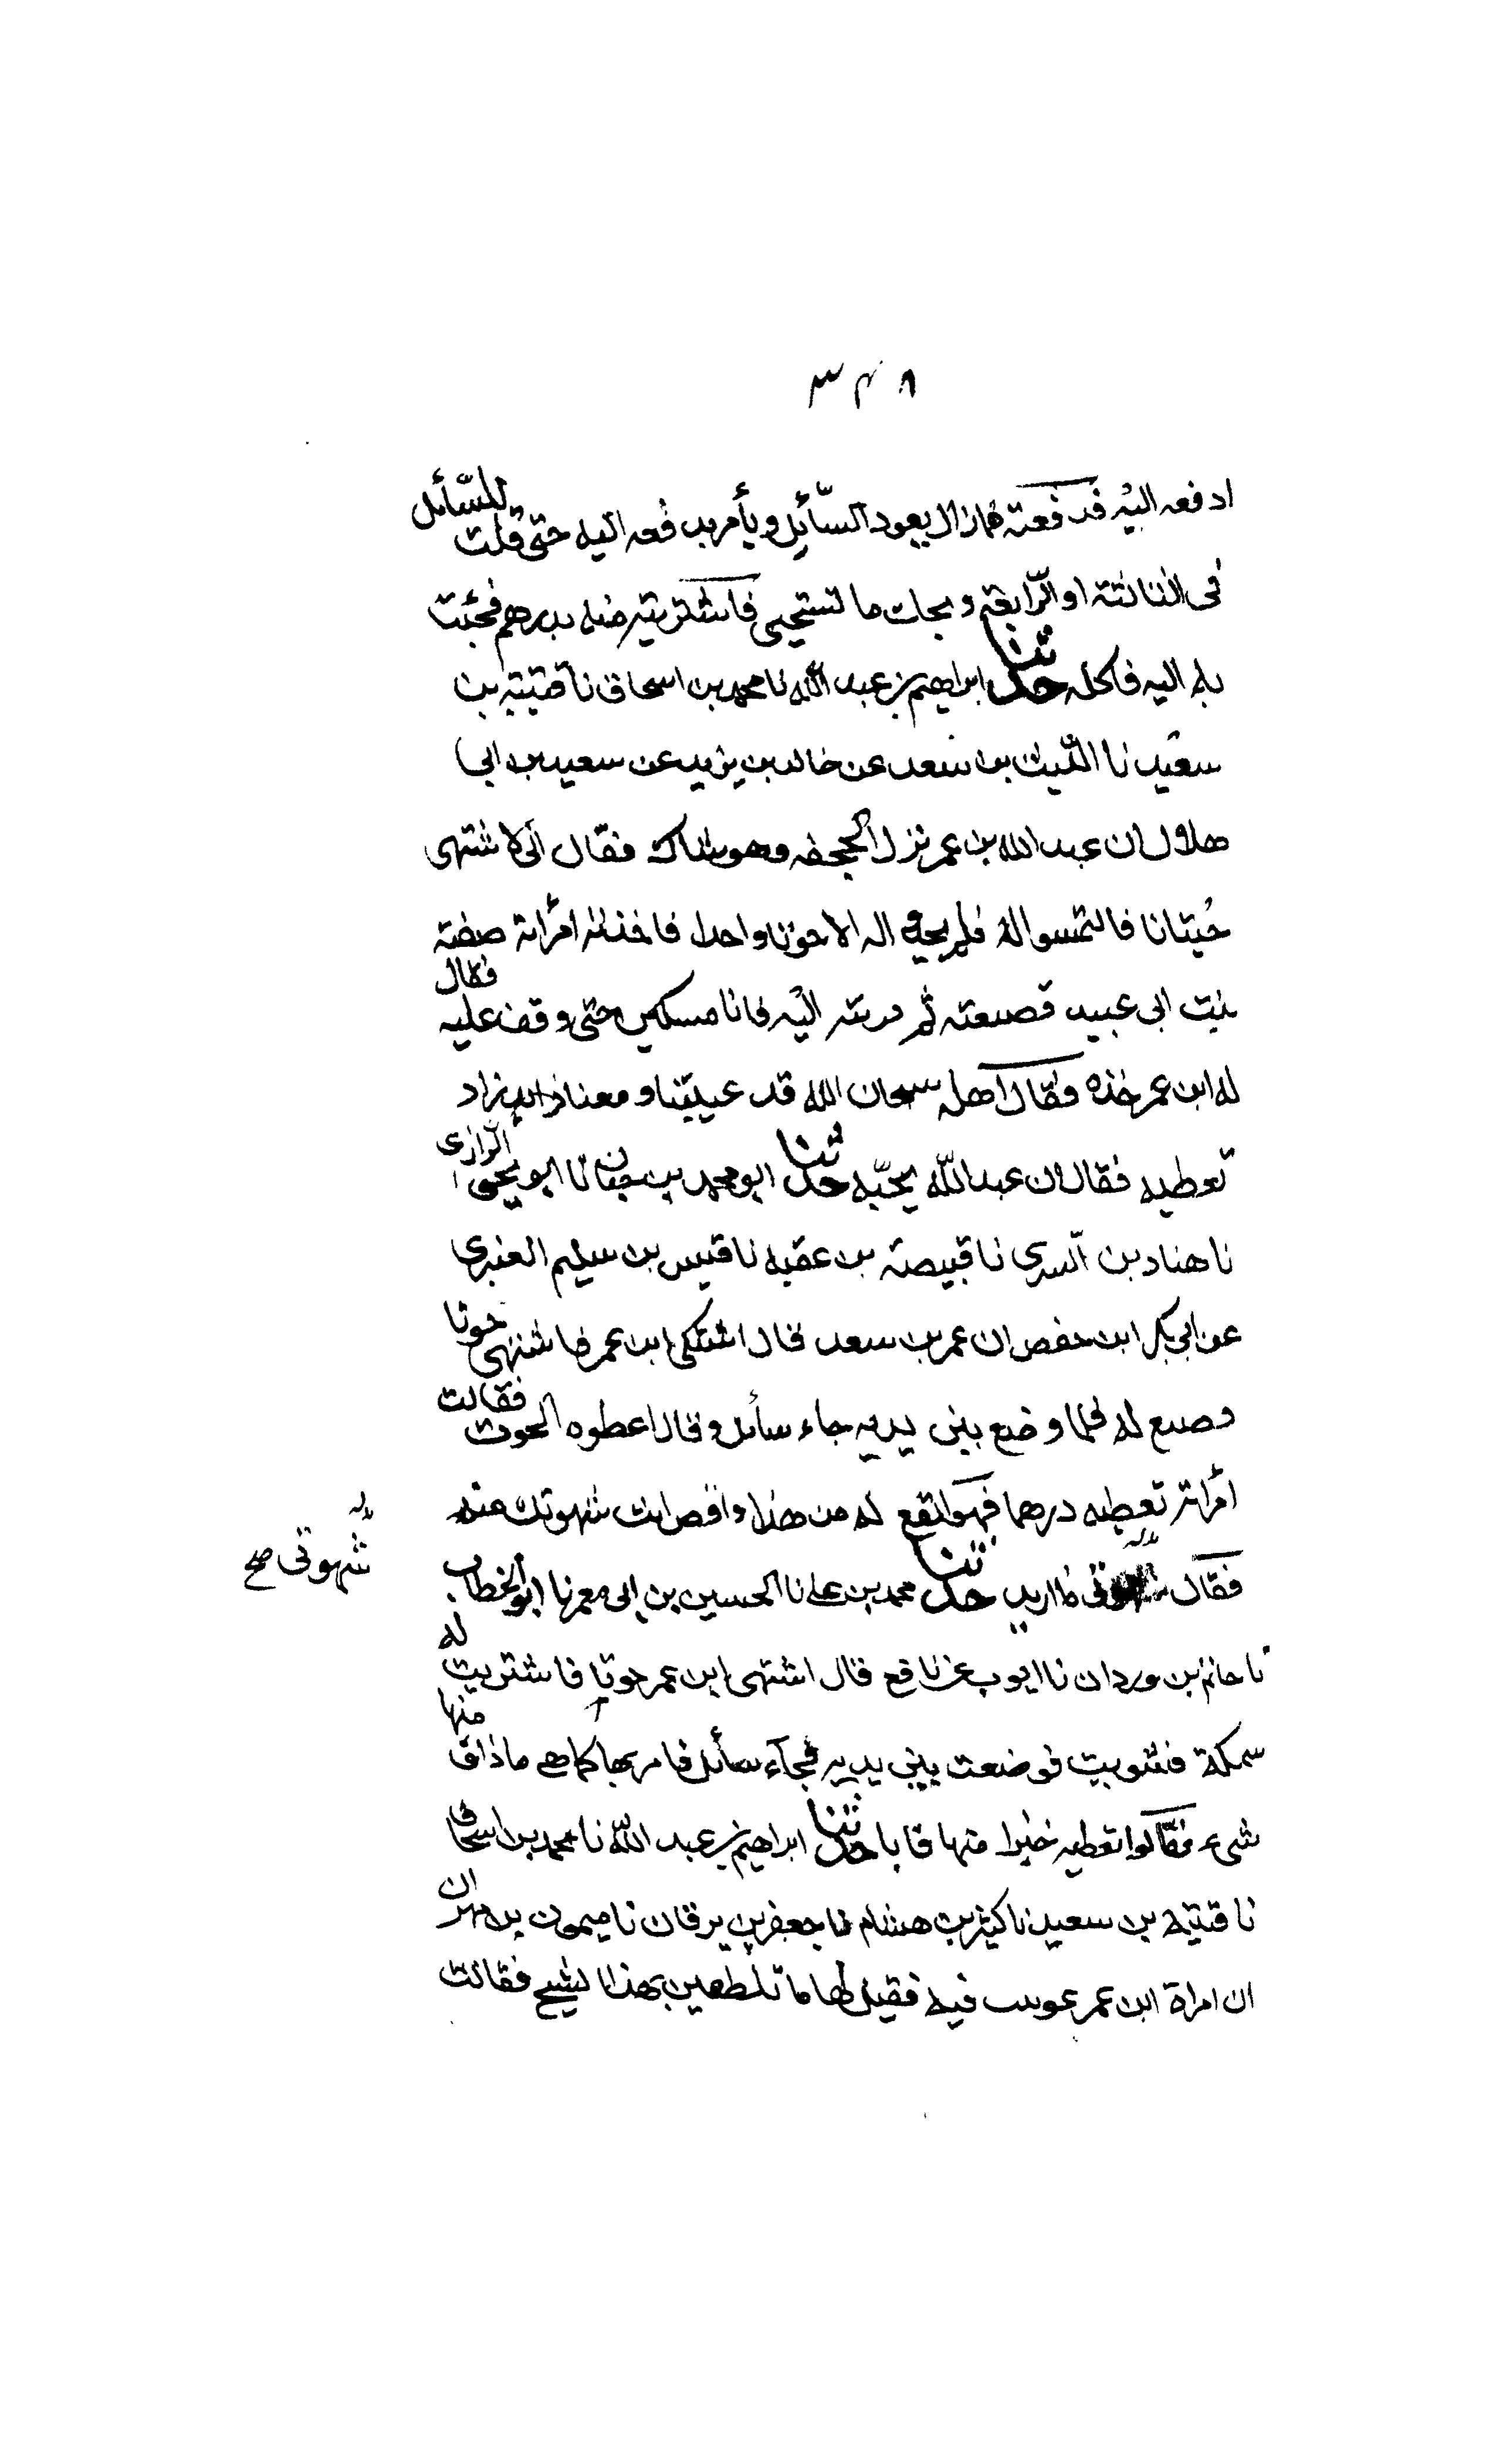 ٣٤٨
ادفعه اليه فدفعته فمازال يعود السّائل ويأمر بدفعه اليه حتى قلت للسّائل
فى الثالثة او الرّابعة ويحك ما تستحيى فاشتريته منه بدرهم فجئت
به اليه فاكله حدثنا ابراهيم بن عبد الله نا محمد بن اسحاق نا قتيبة بن
سعيد نا اللّيث بن سعد عن خالد بن يزيد عن سعيد بن ابى
هلال ان عبد الله بن عمر نزل الجحفه وهو شاك فقال انى لاشتهى
حُيتانا فالتمسوا له فلم يجدوا له الا حوتا واحدا فاخذته امرأته صفية
بنت ابى عبيد فصنعته ثم قربته اليه فاتا مسكين حتى وقف عليه فقال
له ابن عمر خذه فقال اهله سبحان الله قد عنيتنا ومعنا زاد
تعطيه فقال ان عبد الله يحبّه حدثنا ابو محمد بن حيان نا ابو يحيى الرازى
نا هناد بن السرى نا قبيصة بن عقبه نا قيس بن سليم العنبرى
عن ابى بكر ابن حفص ان عمر بن سعد قال اشتكى ابن عمر فاشتهى حوتا
فصنع له فلما وضع بين يديه جاء سائل فقال اعطوه الحوت فقالت
امرأته نعطيه درهما فهو انفع له من هذا واقض انت شهوتك منه
فقال شهوتى ما اريد حدثنا محمد بن على نا الحسين بن ابى معمر نا ابو الخطاب
شهوتى صح
نا حاتم بن وردان نا ايوب عن نافع قال اشتهى ابن عمر حوتا فاشتريت له
سمكة فشويت فوضعت بين يديه فجآء سائل فامر بها كما هى ما ذاق منها
شىء فقالوا نعطيه خيرا منها فابا حدثنا ابراهيم بن عبد الله نا محمد بن اسحاق
نا قتيبة بن سعيد نا كثير بن هشام نا جعفر بن برقان نا ميمون بن مهران
ان امراة ابن عمر عوتبت فيه فقيل لها ما تلطفين بهذا الشيخ فقالت